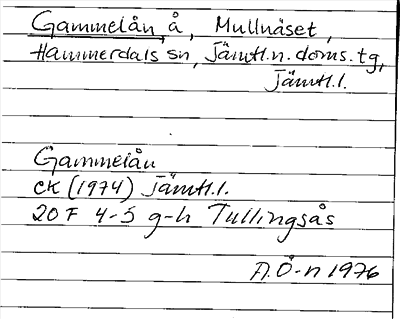 Gammelån, å, Mullnäset,
Hammerdals sn, Jämtl.n. doms. tg,
Jämtl.l.
Gammelån
CK (1974) Jämtl.l.
20 F 4-5 g-h Tullingsås
A.Ö-n 1976